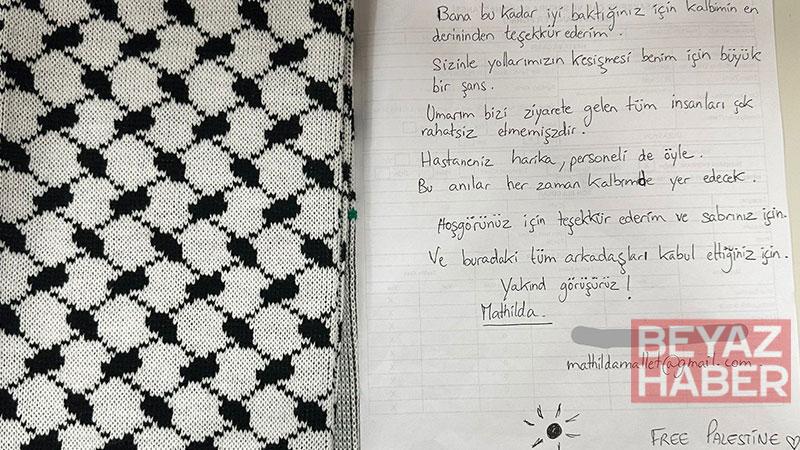 Bana bu kadar iyi baktığınız için kalbimin en
derininden teşekkür ederim.
Sizinle yollarımızın kesişmesi benim için büyük
bir şans.
Umarım bizi ziyarete gelen tüm insanları çok
rahatsiz etmemişzdir.
Hastaneniz harika, personeli de öyle.
Bu anılar her zaman kalbimde yer edecek.
Hoşgörünüz için teşekkür ederim ve sabrınız için.
Ve buradaki tüm arkadaşları kabul ettiğiniz için.
Yakınd görüşürüz!
Mathilda.
mathildamallet@gmail.com.
BEYAZ
HABER
FREE PALESTINE